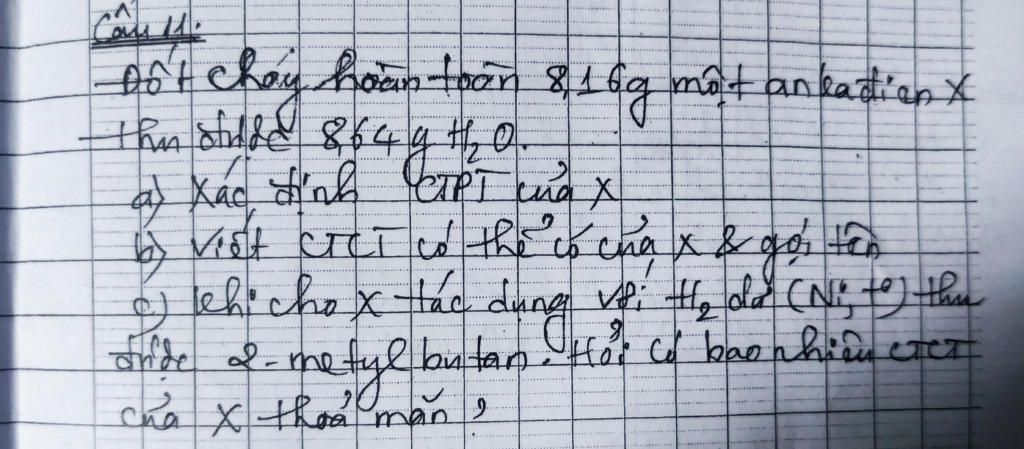 Câu 11:
Đốt cháy hoàn toàn 8,16g một ankađien X
thu được 8,64g H₂O.
a) Xác định CTPT của X
b) Viết CTCT có thể có của X & gọi tên
c) Khi cho X tác dụng với H₂ dư (Ni, t°) thu
được 2-metylbutan. Hỏi có bao nhiêu CTCT
của X thoả mãn ?